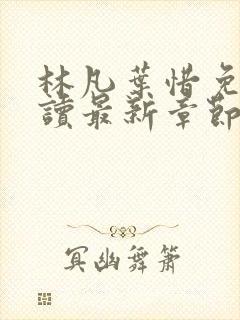 林凡葉惜免
讀最新章節
冥幽舞簫